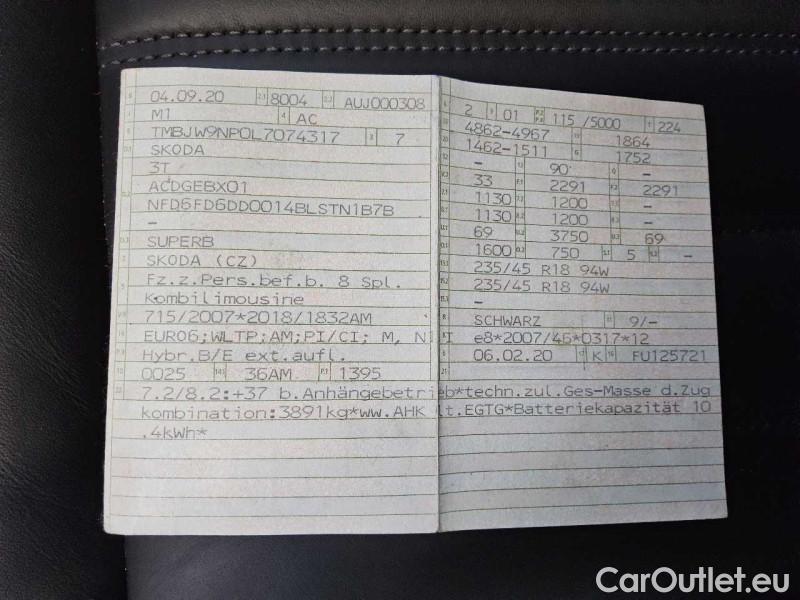 04.09.20 8004 AUJ000308
M1 AC
TMBJW9NP0L7074317 7
SKODA
3T
ACDGEBX01
NFD6FD6DD0014BLSTN1B7B
-
SUPERB
SKODA (CZ)
Fz.z.Pers.bef.b. 8 Spl.
Kombilimousine
715/2007*2018/1832AM
EURO6;WLTP;AM;PI/CI; M, N1 I
Hybr.B/E ext.aufl.
0025 36AM 1395
2 01 115 /5000 224
4862-4967 1864
1462-1511 1752
- 90 -
33 2291 2291
1130 1200 -
1130 1200 -
69 3750 69
1600 750 5 -
235/45 R18 94W
235/45 R18 94W
-
SCHWARZ 9/-
e8*2007/46*0317*12
06.02.20 K FU125721
7.2/8.2:+37 b.Anhängebetrieb*techn.zul.Ges-Masse d.Zug
kombination:3891kg*ww.AHK lt.EGTG*Batteriekapazität 10
.4kWh*
CarOutlet.eu